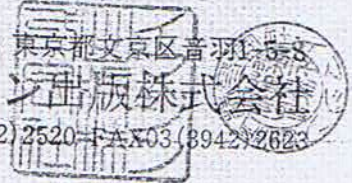 東京都文京区音羽1-5-8
ン出版株式会社
2)2520 FAX03(3942)2623